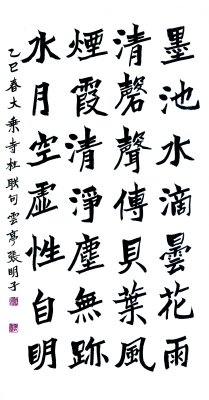 墨池水滴曇花雨
清磬聲傳貝葉風
煙霞清淨塵無跡
水月空虛性自明
乙巳春大乘寺柱联句雲亭張明子